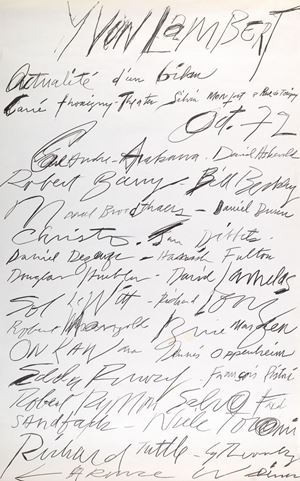 YVON LAMBERT
Actualité d'un bilan
Carré Thorigny Theatre Silvia Monfort
Oct. 72
Arakawa - David Askevold
Robert Barry - Bill Beckley
Marcel Broodthaers - Daniel Buren
Christo - Jan Dibbets
Daniel Dezeuze - Hamish Fulton
Douglas Huebler - David Lamelas
Sol LeWitt - Richard Long
Robert Mangold Brice Marden
ON KAWara Dennis Oppenheim
Edda Renouf - François Ristori
Robert Ryman Salvo Fred
Sandback - Niele Toroni
Richard Tuttle - Cy Twombly
Lawrence Weiner